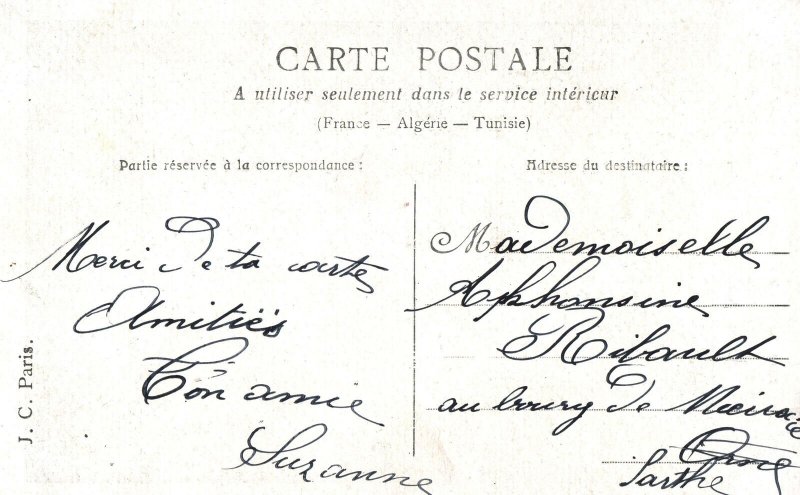 CARTE POSTALE
A utiliser seulement dans le service intérieur
(France — Algérie — Tunisie)
Partie réservée à la correspondance :
Adresse du destinataire :
Merci de ta carte
Amitiés
Ton amie
Suzanne
Mademoiselle
Alphonsine
Ribault
au bourg de
Orne
Sarthe
J. C. Paris.